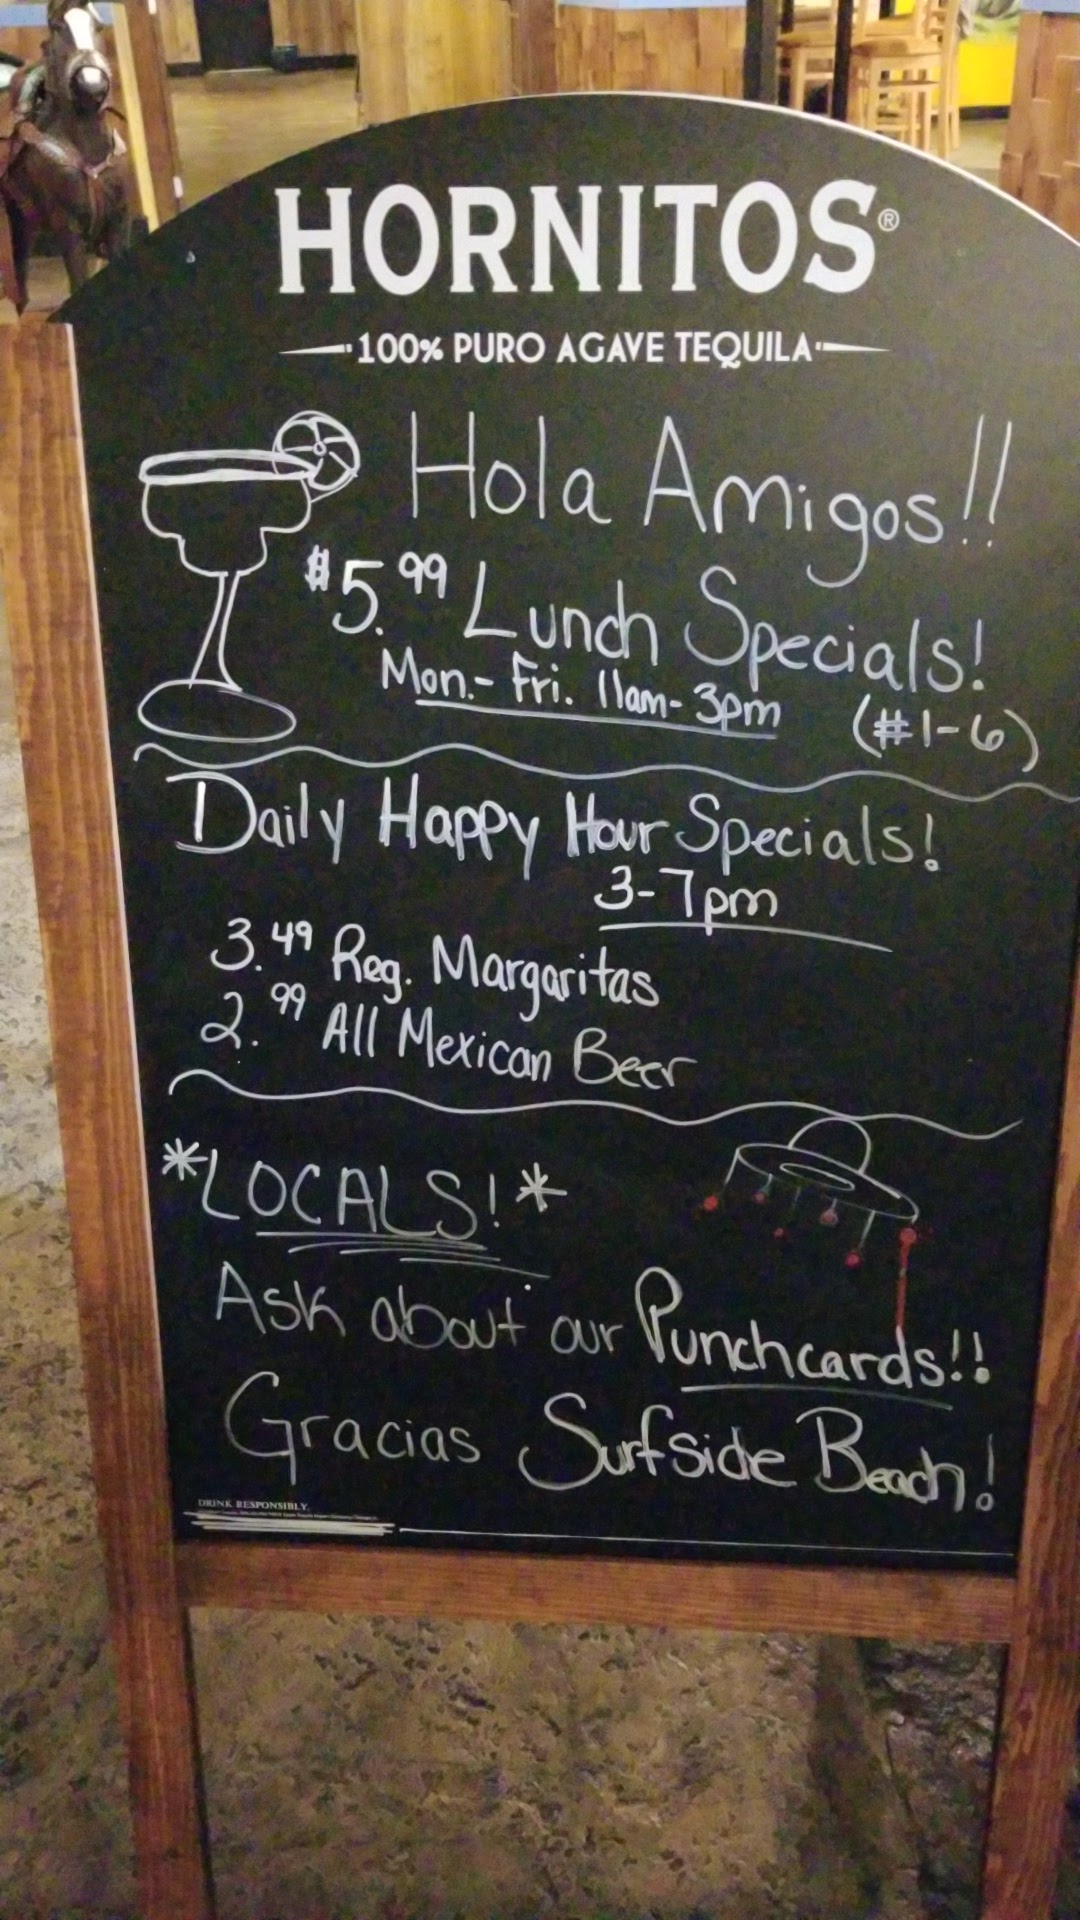 HORNITOS®
100% PURO AGAVE TEQUILA
Hola Amigos!!
$5.99 Lunch Specials!
Mon.- Fri. 11am-3pm (#1-6)
Daily Happy Hour Specials!
3-7pm
3.49 Reg. Margaritas
2.99 All Mexican Beer
*LOCALS!*
Ask about our Punchcards!!
Gracias Surfside Beach!
DRINK RESPONSIBLY.